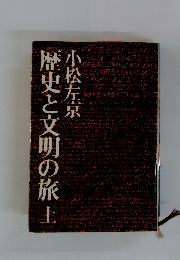 小松左京
歴史と文明の旅 上